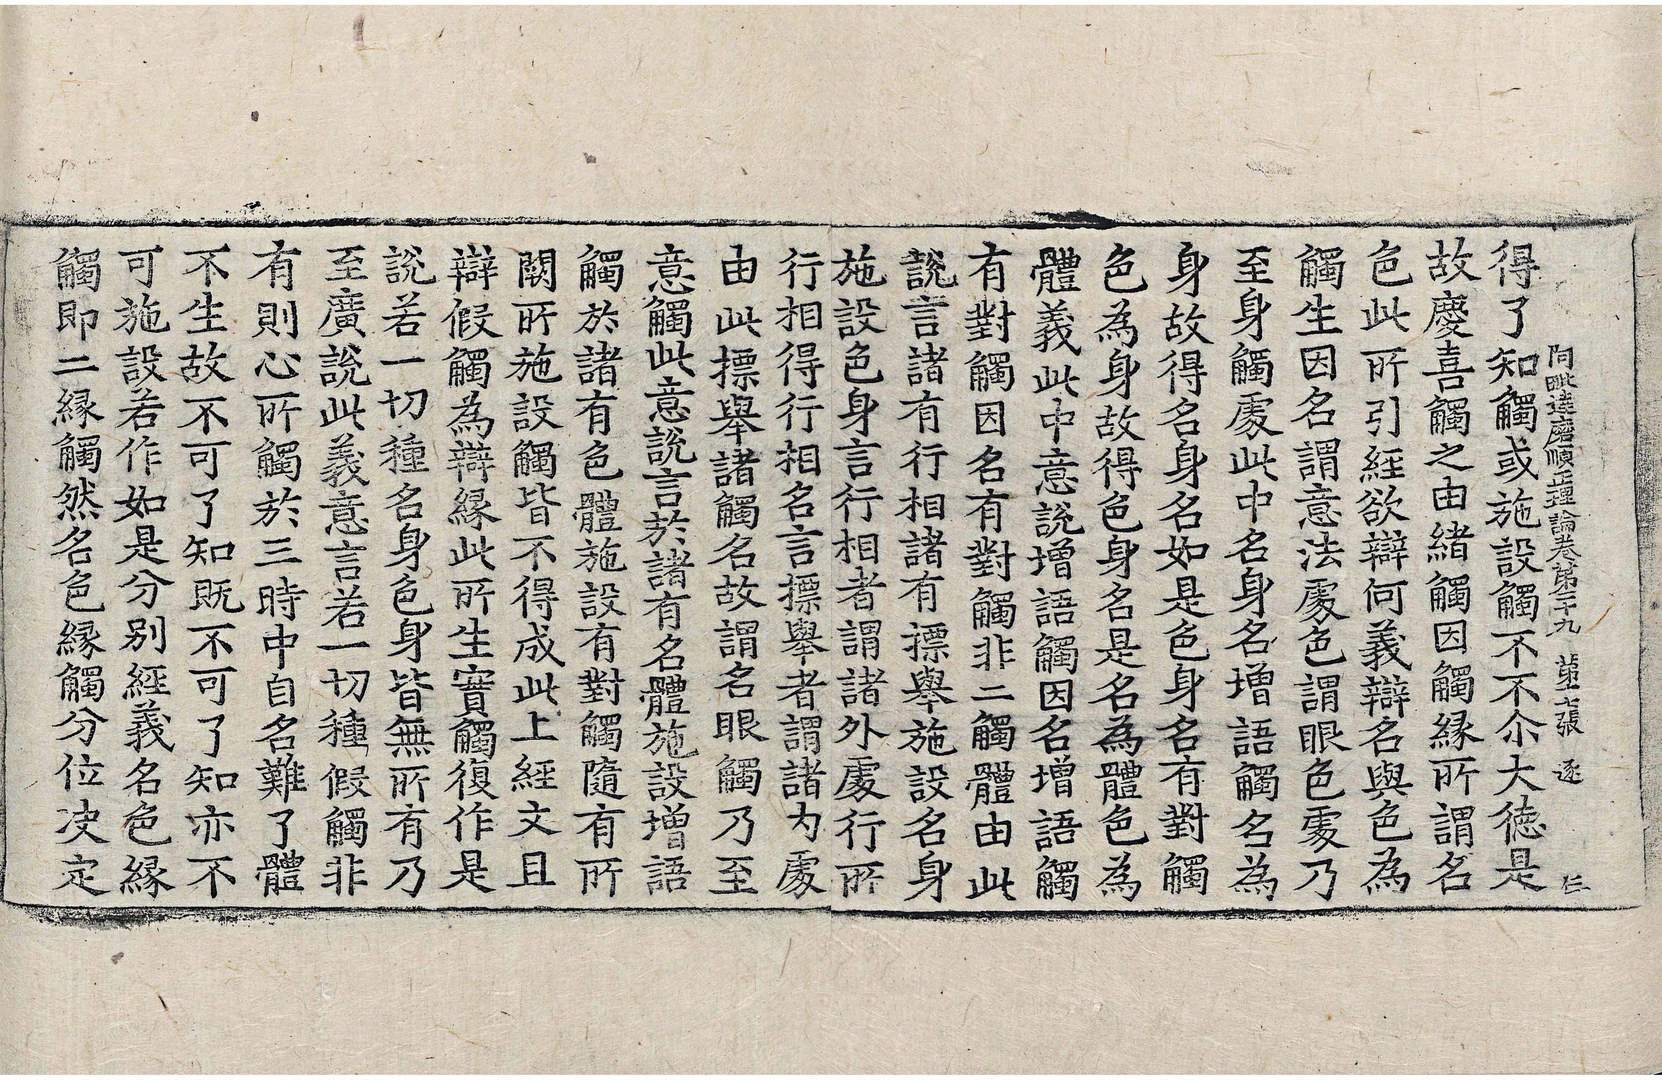 阿毗達磨順正理論卷第二十九　第七張　逐　仁
得了知觸或施設觸不不尒大德是
故慶喜觸之由緒觸因觸緣所謂名
色此所引經欲辯何義辯名與色為
觸生因名謂意法處色謂眼色處乃
至身觸處此中名身名增語觸名為
身故得名身名如是色身名有對觸
色為身故得色身名是名為體色為
體義此中意說增語觸因名增語觸
有對觸因名有對觸非二觸體由此
說言諸有行相諸有摽舉施設名身
施設色身言行相者謂諸外處行所
行相得行相名言摽舉者謂諸內處
由此摽舉諸觸名故謂名眼觸乃至
意觸此意說言於諸有名體施設增語
觸於諸有色體施設有對觸隨有所
闕所施設觸皆不得成此上經文且
辯假觸為辯緣此所生實觸復作是
說若一切種名身色身皆無所有乃
至廣說此義意言若一切種假觸非
有則心所觸於三時中自名難了體
不生故不可了知既不可了知亦不
可施設若作如是分別經義名色緣
觸即二緣觸然名色緣觸分位決定